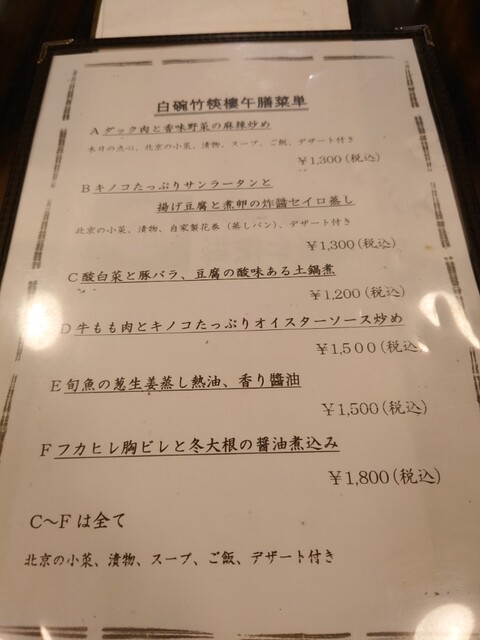 白碗竹筷樓午膳菜単
A ダック肉と香味野菜の麻辣炒め
本日の点心、北京の小菜、漬物、スープ、ご飯、デザート付き
￥1,300(税込)
B キノコたっぷりサンラータンと
揚げ豆腐と煮卵の炸醤セイロ蒸し
北京の小菜、漬物、自家製花巻（蒸しパン）、デザート付き
￥1,300(税込)
C 酸白菜と豚バラ、豆腐の酸味ある土鍋煮
￥1,200(税込)
D 牛もも肉とキノコたっぷりオイスターソース炒め
￥1,500(税込)
E 旬魚の葱生姜蒸し熱油、香り醬油
￥1,500(税込)
F フカヒレ胸ビレと冬大根の醤油煮込み
￥1,800(税込)
C～F は全て
北京の小菜、漬物、スープ、ご飯、デザート付き